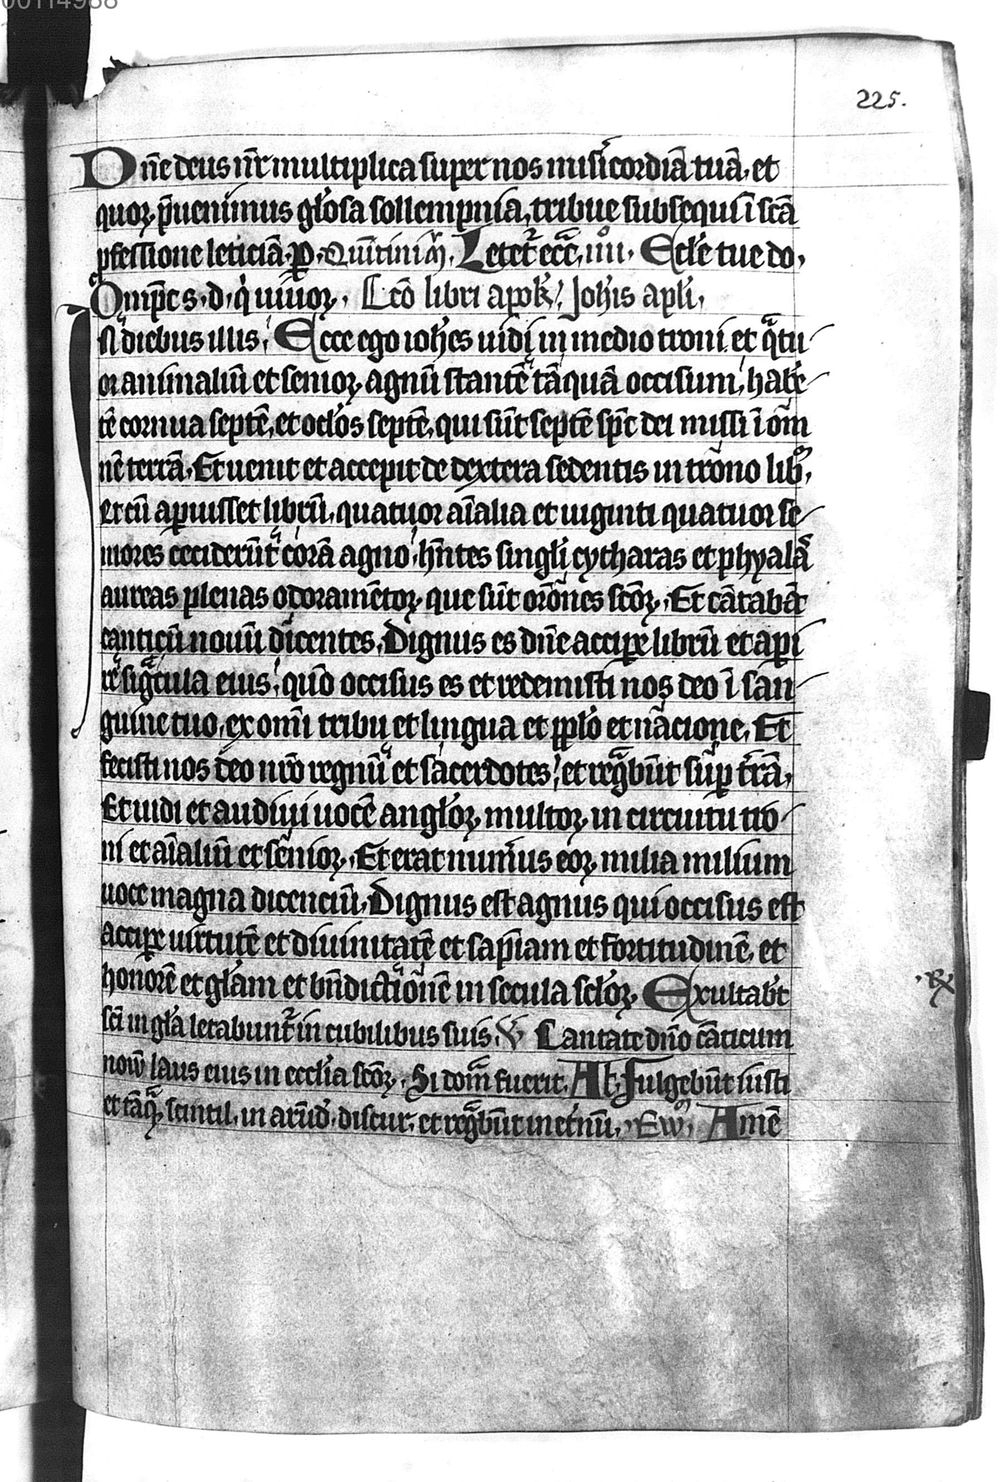 00114988
225.
Dn̄e deus nr̄ multiplica super nos misīcordiā tuā, et
quoꝝ p̄uenimus gl̓osa sollempnia, tribue subsequi ī scā
ꝓfessione leticiā. ꝑ.
Letet̄ ecc̄. Eccl̓e tue do,
Omīps s. d. q̓
Lcō libri apok̓. Joh̓is apl̓i,
In diebus illis, Ecce ego ioh̓es uidi in medio troni et qͣtu
or animaliū et senioꝝ, agnū stantē tāquā occisum, habē
tē cornua septē, et ocl̓os septē, qui sūt septē sp̄c dei missi ī om̄
nē terrā. Et uenit et accepit de dextera sedentis in trōno libͦ,
Et cū apuisset librū, quatuor aīalia et uiginti quatuor se
niores cecider̄ūt corā agno, hn̄tes singl̓i cytharas et phyalaͣ
aureas plenas odoramētoꝝ, que sūt orōnes scōꝝ. Et cātabāt
canticū nouū dicentes, Dignus es dn̄e accipe librū et api
re sigͣcula eius, qm̄ occisus es et redemisti nos deo ī san
guine tuo, ex omī tribu et lingua et ppl̓o et nacione, Et
fecisti nos deo nr̄o regnū et sacerdotes, et regͣbūt sup̄ t̄rā,
Et uidi et audiui uocē angl̓oꝝ multoꝝ in circuitu tro
ni et aīaliū et senioꝝ, Et erat num̄us eoꝝ milia milium
uoce magna dicenciū, Dignus est agnus qui occisus est
accipe uirtutē et diuinitatē et sapīam et fortitudinē, et
honorē et gl̓am et bn̄dictiōnē in secula scl̓oꝝ, Exultabūt
scī in gl̓a letabunt̄ in cubilibus suis. ℣ Cantate dn̄o cāticum
nouū laus eius in eccl̓ia scōꝝ. Si dom̄ fuerit. Al̓l. Fulgebūt iusti
et tāqͣ scintil. in arūd. discur. et regͣbūt in et̓nū, Amē